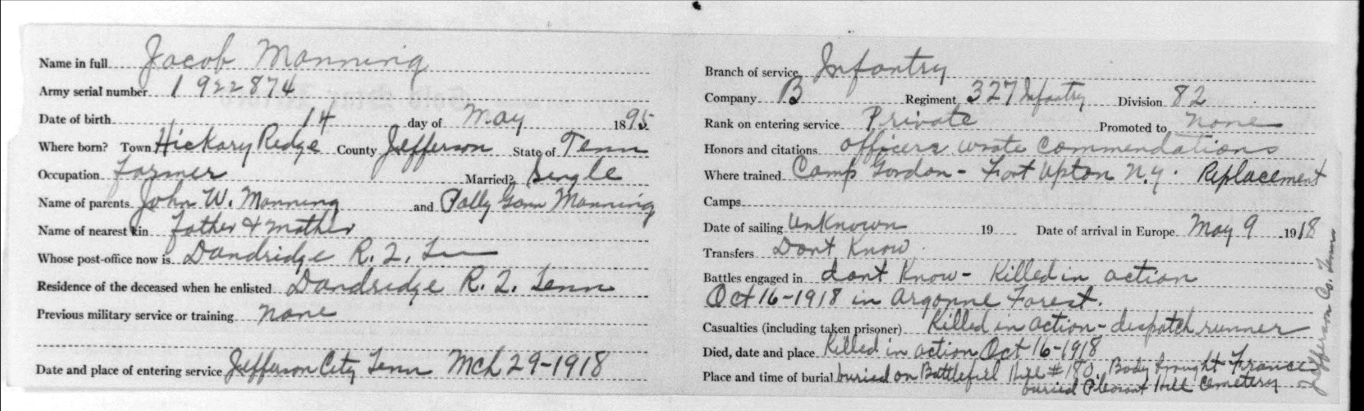 Name in full Jacob Manning
Army serial number 1 922874
Date of birth 14 day of May 1895
Where born? Town Hickary Redge County Jefferson State of Tenn
Occupation Farmer Married? Single
Name of parents John W. Manning and Polly Gann Manning
Name of nearest kin Father & Mother
Whose post-office now is Dandridge R. 2.
Residence of the deceased when he enlisted Dandridge R. 2. Tenn
Previous military service or training none
Date and place of entering service Jefferson City Tenn Mch 29-1918
Branch of service Infantry
Company B Regiment 327 Infantry Division 82
Rank on entering service Private Promoted to none
Honors and citations officers wrote commendations
Where trained Camp Gordon - Fort Upton N.Y. Replacement
Camps
Date of sailing Unknown 19 Date of arrival in Europe May 9 1918
Transfers Dont Know
Battles engaged in dont Know - Killed in action
Oct 16-1918 in Argonne Forest.
Casualties (including taken prisoner) Killed in action - despatch runner
Died, date and place Killed in action Oct 16-1918
Place and time of burial buried on Battlefiel Hill #180, Body brought France
buried Pleasant Hill Cemetery
Jefferson Co. Tenn